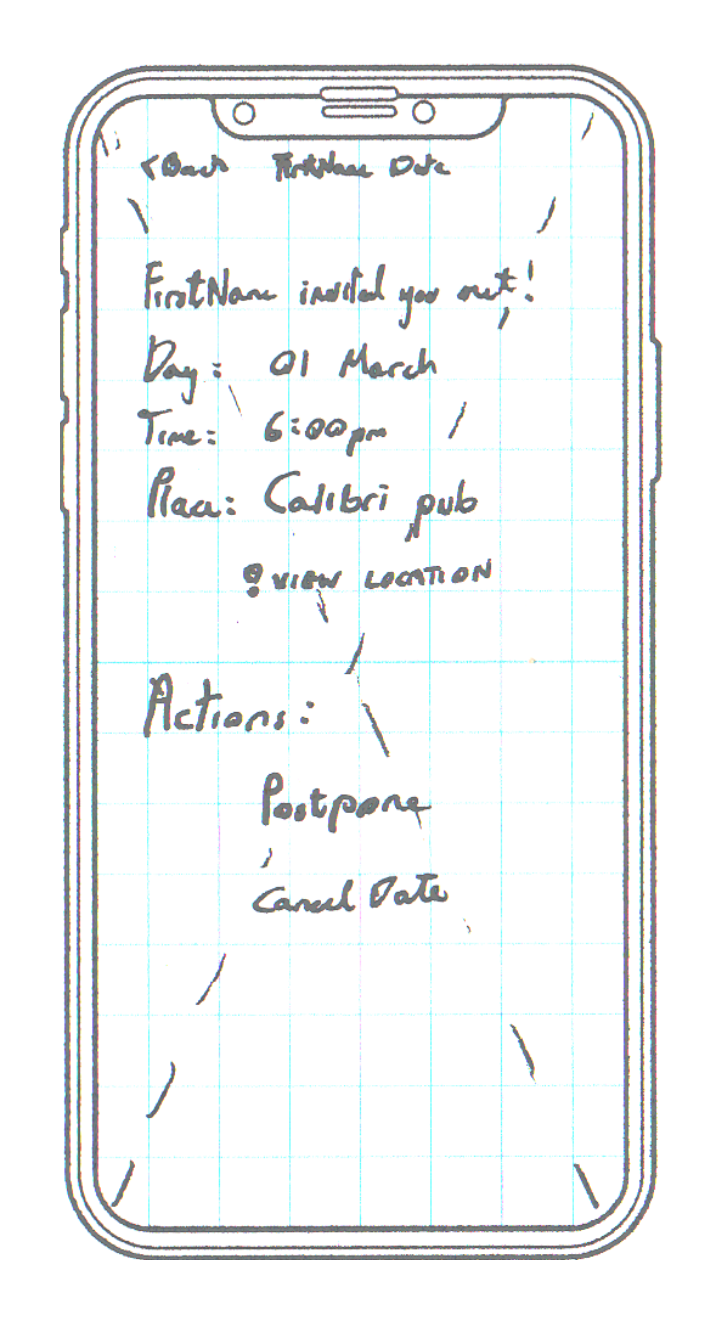 < Back FirstName Date
FirstName invited you out!
Day: 01 March
Time: 6:00pm
Place: Calibri pub
VIEW LOCATION
Actions:
Postpone
Cancel Date